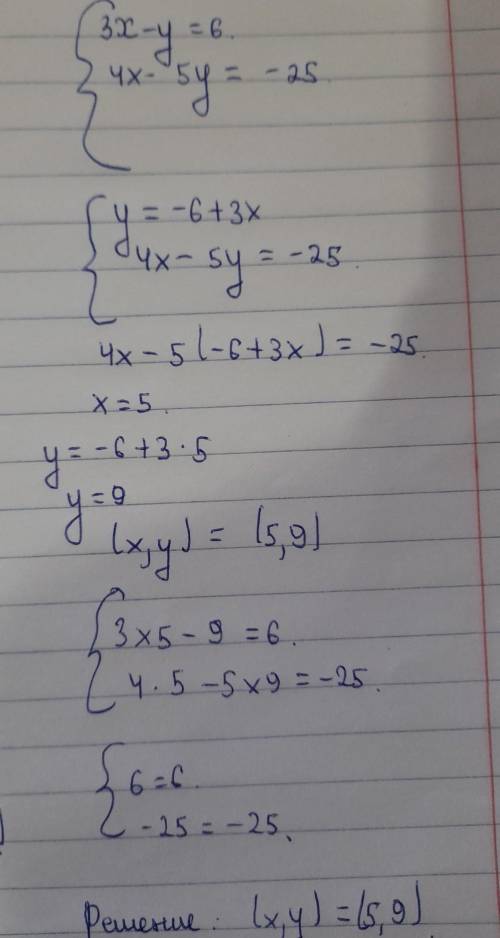 3x-y=6.
4x-5y=-25
y=-6+3x
4x-5y=-25.
4x-5(-6+3x)=-25.
x=5.
y=-6+3·5
y=9
(x,y)=(5,9)
3×5-9=6.
4·5-5×9=-25.
6=6.
-25=-25.
Решение: (x,y)=(5,9)